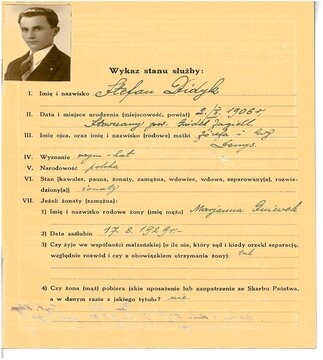 Wykaz stanu służby:
I. Imię i nazwisko Stefan Didyk
II. Data i miejsce urodzenia (miejscowość, powiat) 2/X 1906 r.
pow.
III. Imię ojca, oraz imię i nazwisko (rodowe) matki Józefa i
IV. Wyznanie rzym-kat
V. Narodowość polska
VI. Stan [kawaler, panna, żonaty, zamężna, wdowiec, separowany(a), rozwie-
dziony(a)] żonaty
VII. Jeżeli żonaty (zamężna):
1) Imię i nazwisko rodowe żony (imię męża) Marjanna
2) Data zaślubin 17.8.1929 r.
3) Czy żyje we wspólności małżeńskiej (o ile nie, który sąd i kiedy orzekł separację,
względnie rozwód i czy z obowiązkiem utrzymania żony): tak
4) Czy żona (mąż) pobiera jakie uposażenie lub zaopatrzenie ze Skarbu Państwa,
a w danym razie z jakiego tytułu? nie.